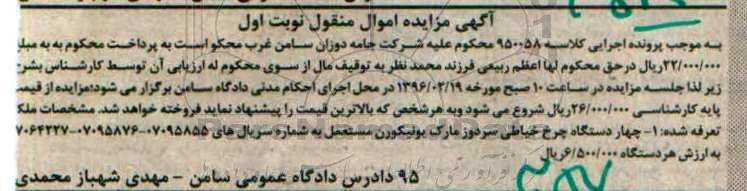 آگهی مزایده اموال منقول نوبت اول
به موجب پرونده اجرایی کلاسه ۹۵۰۰۵۸ محکوم علیه شرکت جامه دوزان سامن غرب محکو است به پرداخت محکوم به به مبلغ
۲۲/۰۰۰/۰۰۰ریال درحق محکوم لها اعظم ربیعی فرزند محمد نظر به توقیف مال از سوی محکوم له ارزیابی آن توسط کارشناس بشرح
زیر لذا جلسه مزایده در ساعت ۱۰ صبح مورخه ۱۳۹۶/۰۲/۱۹ در محل اجرای احکام مدنی دادگاه سامن برگزار می شود؛مزایده از قیمت
پایه کارشناسی ۲۶/۰۰۰/۰۰۰ریال شروع می شود وبه هرشخص که بالاترین قیمت را پیشنهاد نماید فروخته خواهد شد. مشخصات ملک
تعرفه شده: ۱- چهار دستگاه چرخ خیاطی سردوز مارک یونیکورن مستعمل به شماره سریال های ۰۷۰۹۵۸۵۵-۰۷۰۹۵۸۷۶-۷۰۶۴۲۲۷
به ارزش هردستگاه ۶/۵۰۰/۰۰۰ریال
۹۵ دادرس دادگاه عمومی سامن - مهدی شهباز محمدی